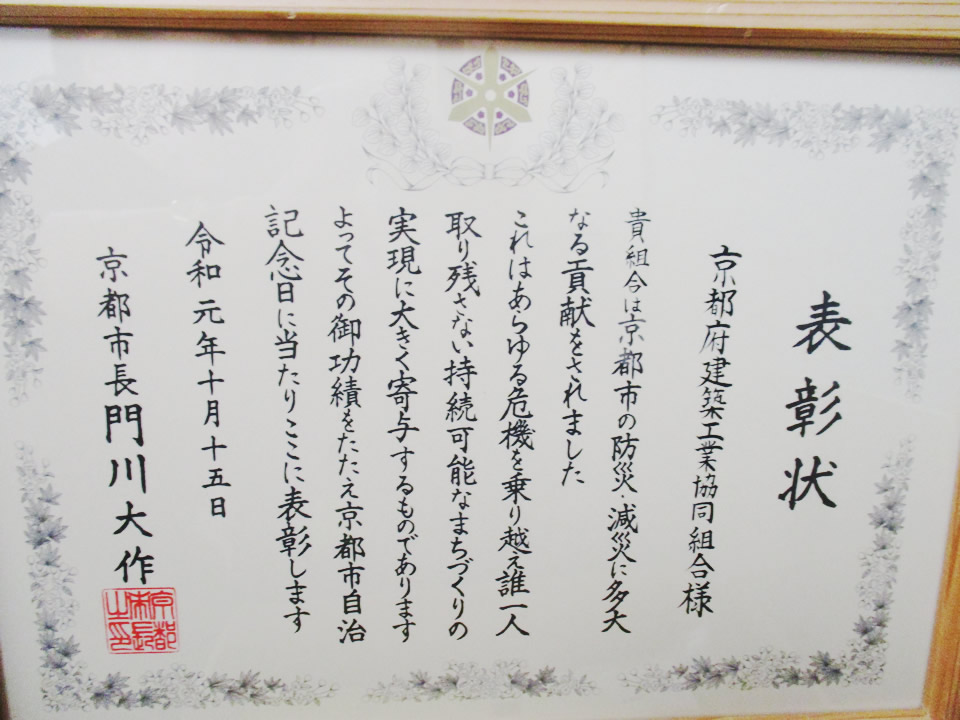 表彰状
京都府建築工業協同組合様
貴組合は京都市の防災・減災に多大
なる貢献をされました
これはあらゆる危機を乗り越え誰一人
取り残さない持続可能なまちづくりの
実現に大きく寄与するものであります
よってその御功績をたたえ京都市自治
記念日に当たりここに表彰します
令和元年十月十五日
京都市長門川大作
京都
市長
之印